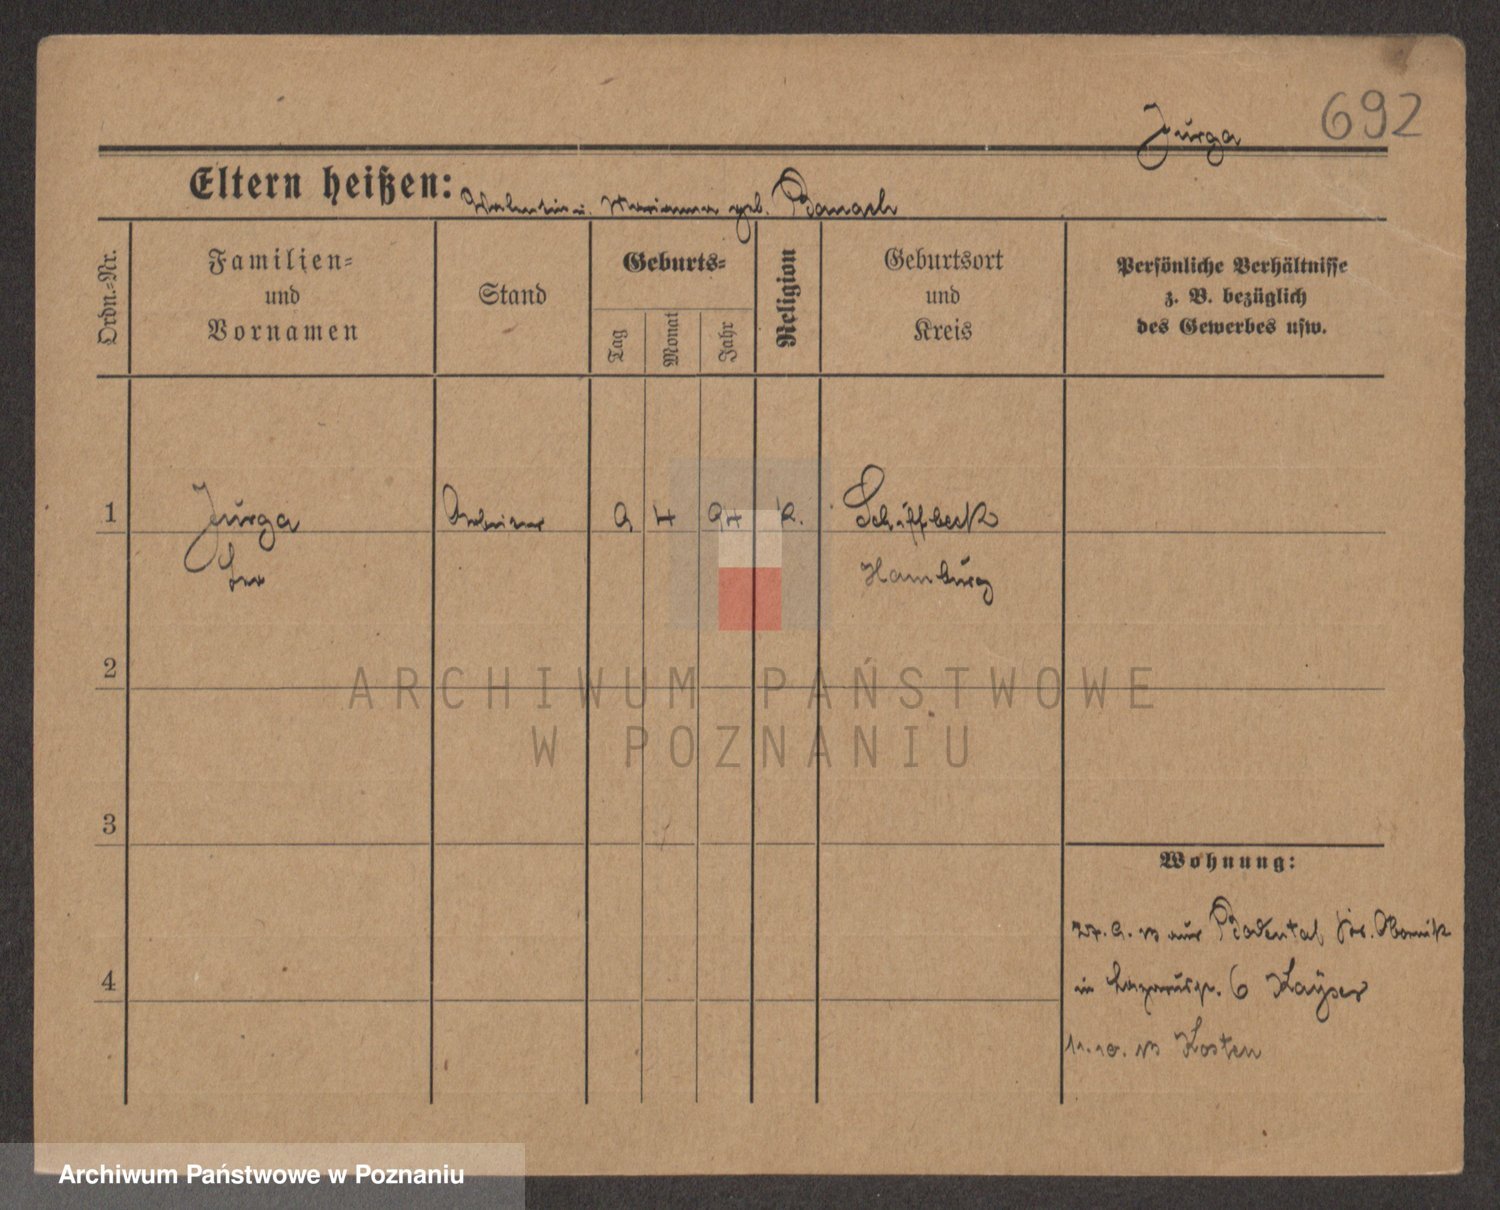 692
Jurga
Eltern heißen: Valentin u. Marianna geb. Banach
Ordn.-Nr.
Familien-
und
Vornamen
Stand
Geburts-
Tag
Monat
Jahr
Religion
Geburtsort
und
Kreis
Persönliche Verhältnisse
z. B. bezüglich
des Gewerbes usw.
1 Jurga Arbeiter 9 4 94 k. Schiffbeck
Leo Hamburg
2
ARCHIWUM PAŃSTWOWE
W POZNANIU
3
Wohnung:
27. 9. 13 aus Bodental Kr. Obornik
4
in Lazarusstr. 6 Kayser
11. 10. 13 Kosten
Archiwum Państwowe w Poznaniu